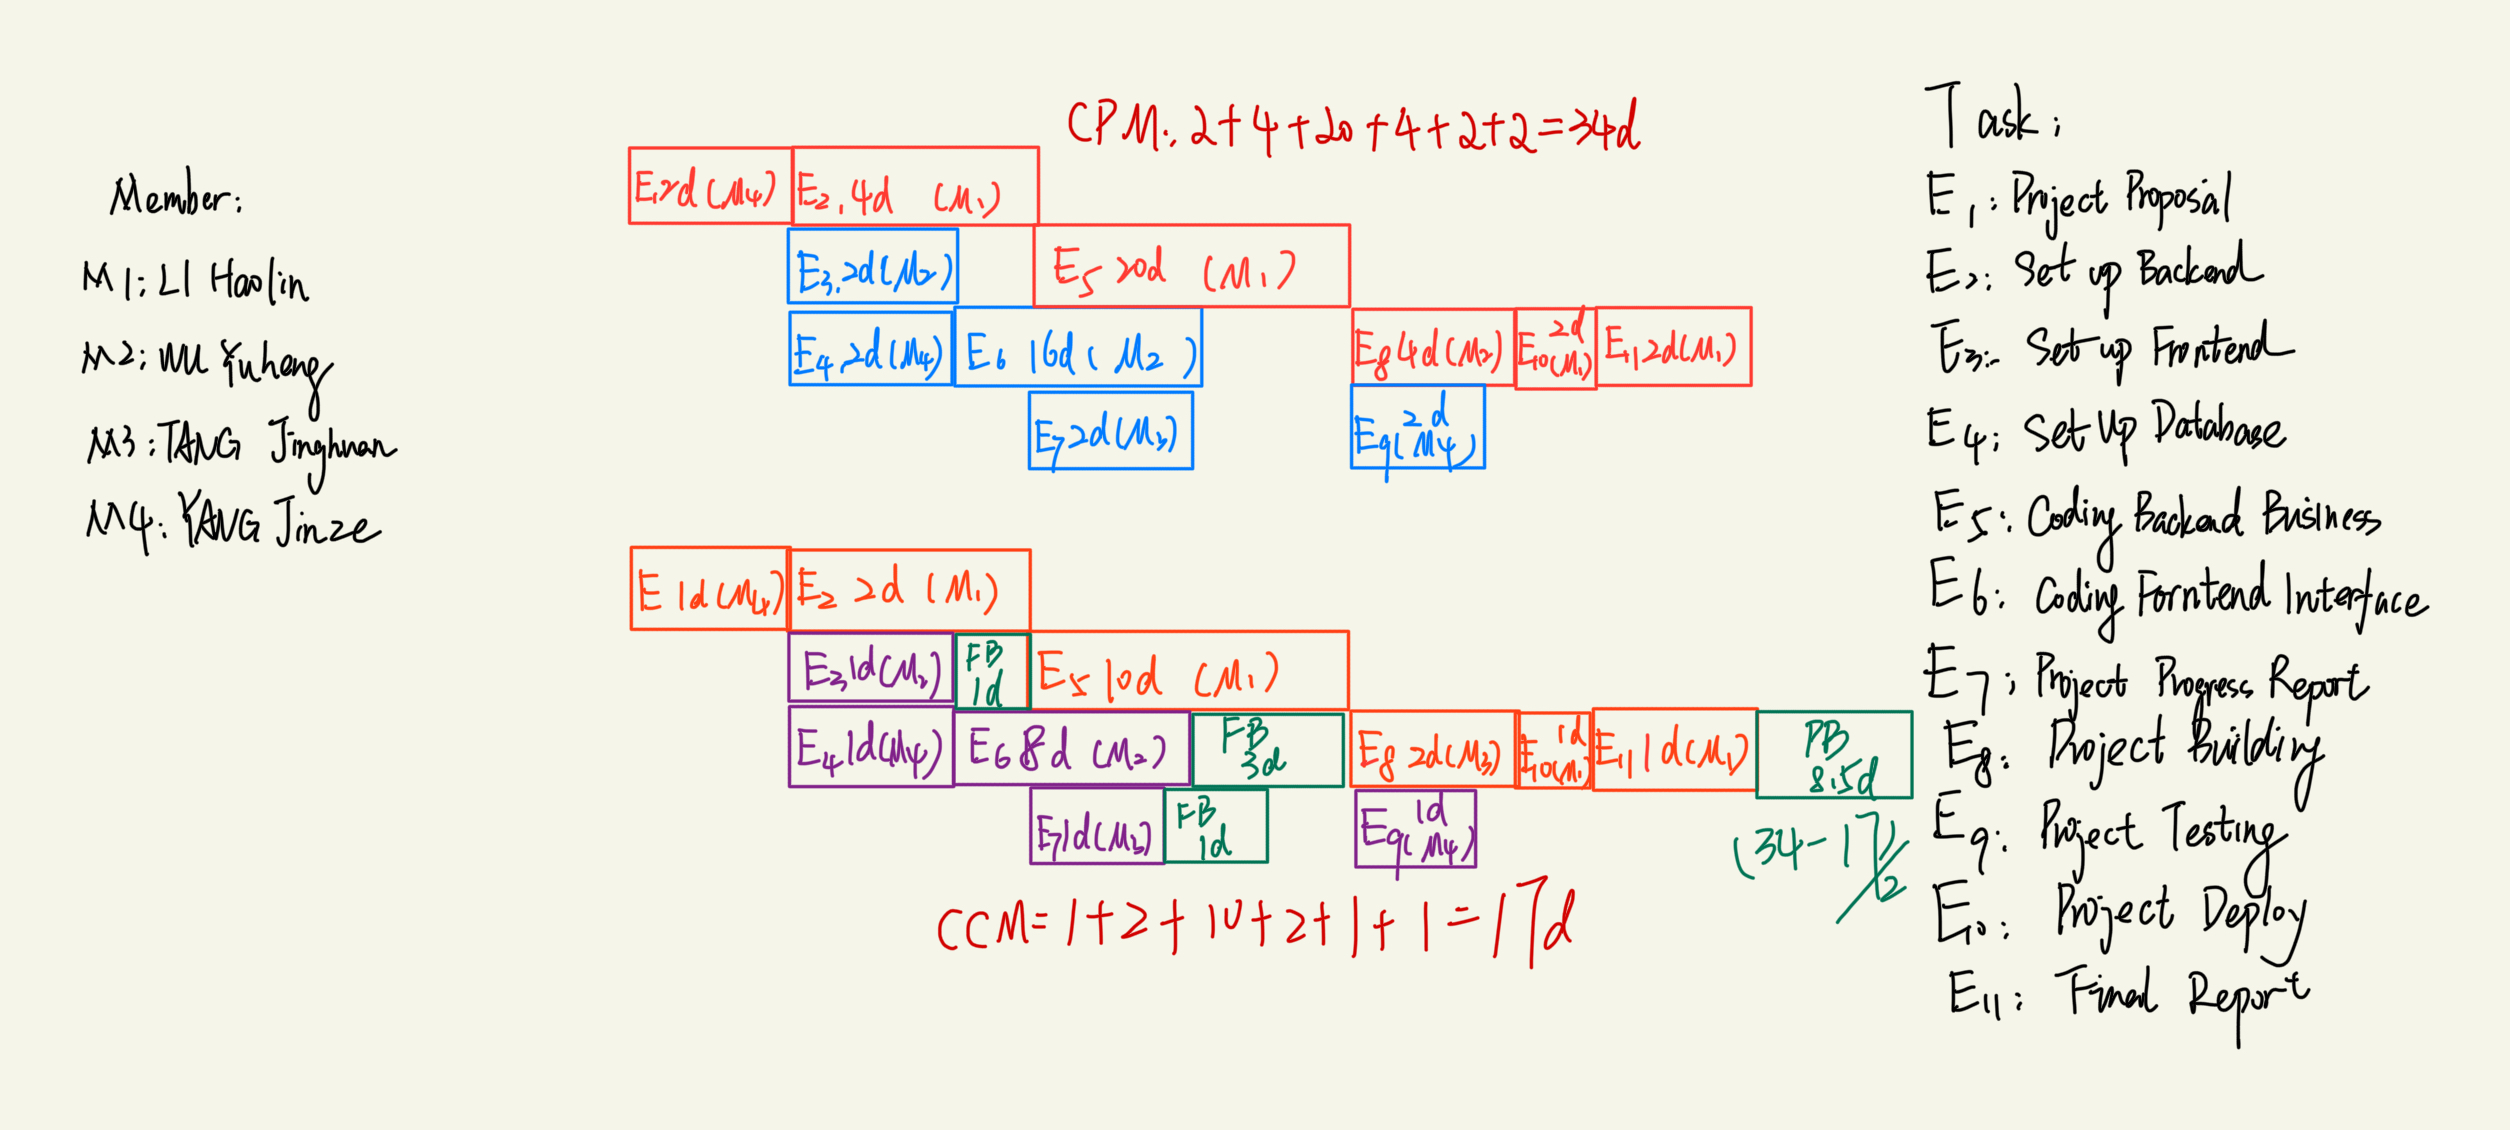 Member:
M1: LI Haolin
M2: WU Yuheng
M3: TANG Jinghuan
M4: YANG Jinze
CPM: 2+4+20+4+2+2=34d
E1 2d (M4)
E2, 4d (M1)
E3, 2d (M2)
E5 20d (M1)
E4, 2d (M4)
E6 16d (M2)
E8 4d (M3)
E10 2d (M1)
E11 2d (M1)
E7 2d (M3)
E9 2d (M4)
E 1d (M4)
E2 2d (M1)
E3 1d (M2)
FB 1d
E5 10d (M1)
E4 1d (M4)
E6 8d (M2)
FB 3d
E8 2d (M3)
E10 1d (M1)
E11 1d (M1)
PB 8.5d
E7 1d (M3)
FB 1d
E9 1d (M4)
(34-17)/2
CCM=1+2+10+2+1+1=17d
Task:
E1: Project Proposal
E2: Set up Backend
E3: Set up Frontend
E4: Set Up Database
E5: Coding Backend Business
E6: Coding Forntend Interface
E7: Project Progress Report
E8: Project Building
E9: Project Testing
E10: Project Deploy
E11: Final Report